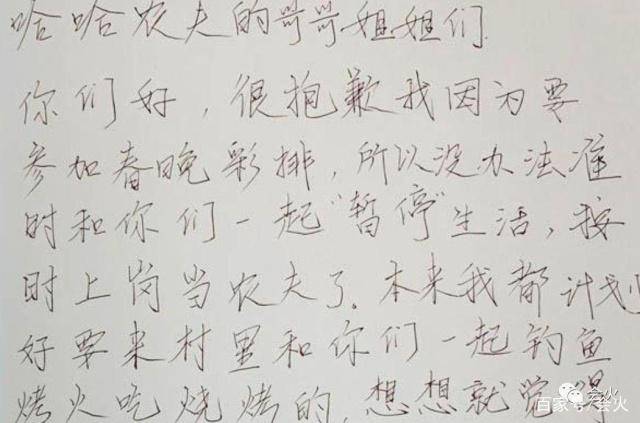 哈哈农夫的哥哥姐姐们
你们好，很抱歉我因为要
参加春晚彩排，所以没办法准
时和你们一起“暂停”生活，按
时上岗当农夫了。本来我都计划
好要来村里和你们一起钓鱼
烤火吃烧烤的，想想就觉得
会火
百家号/会火